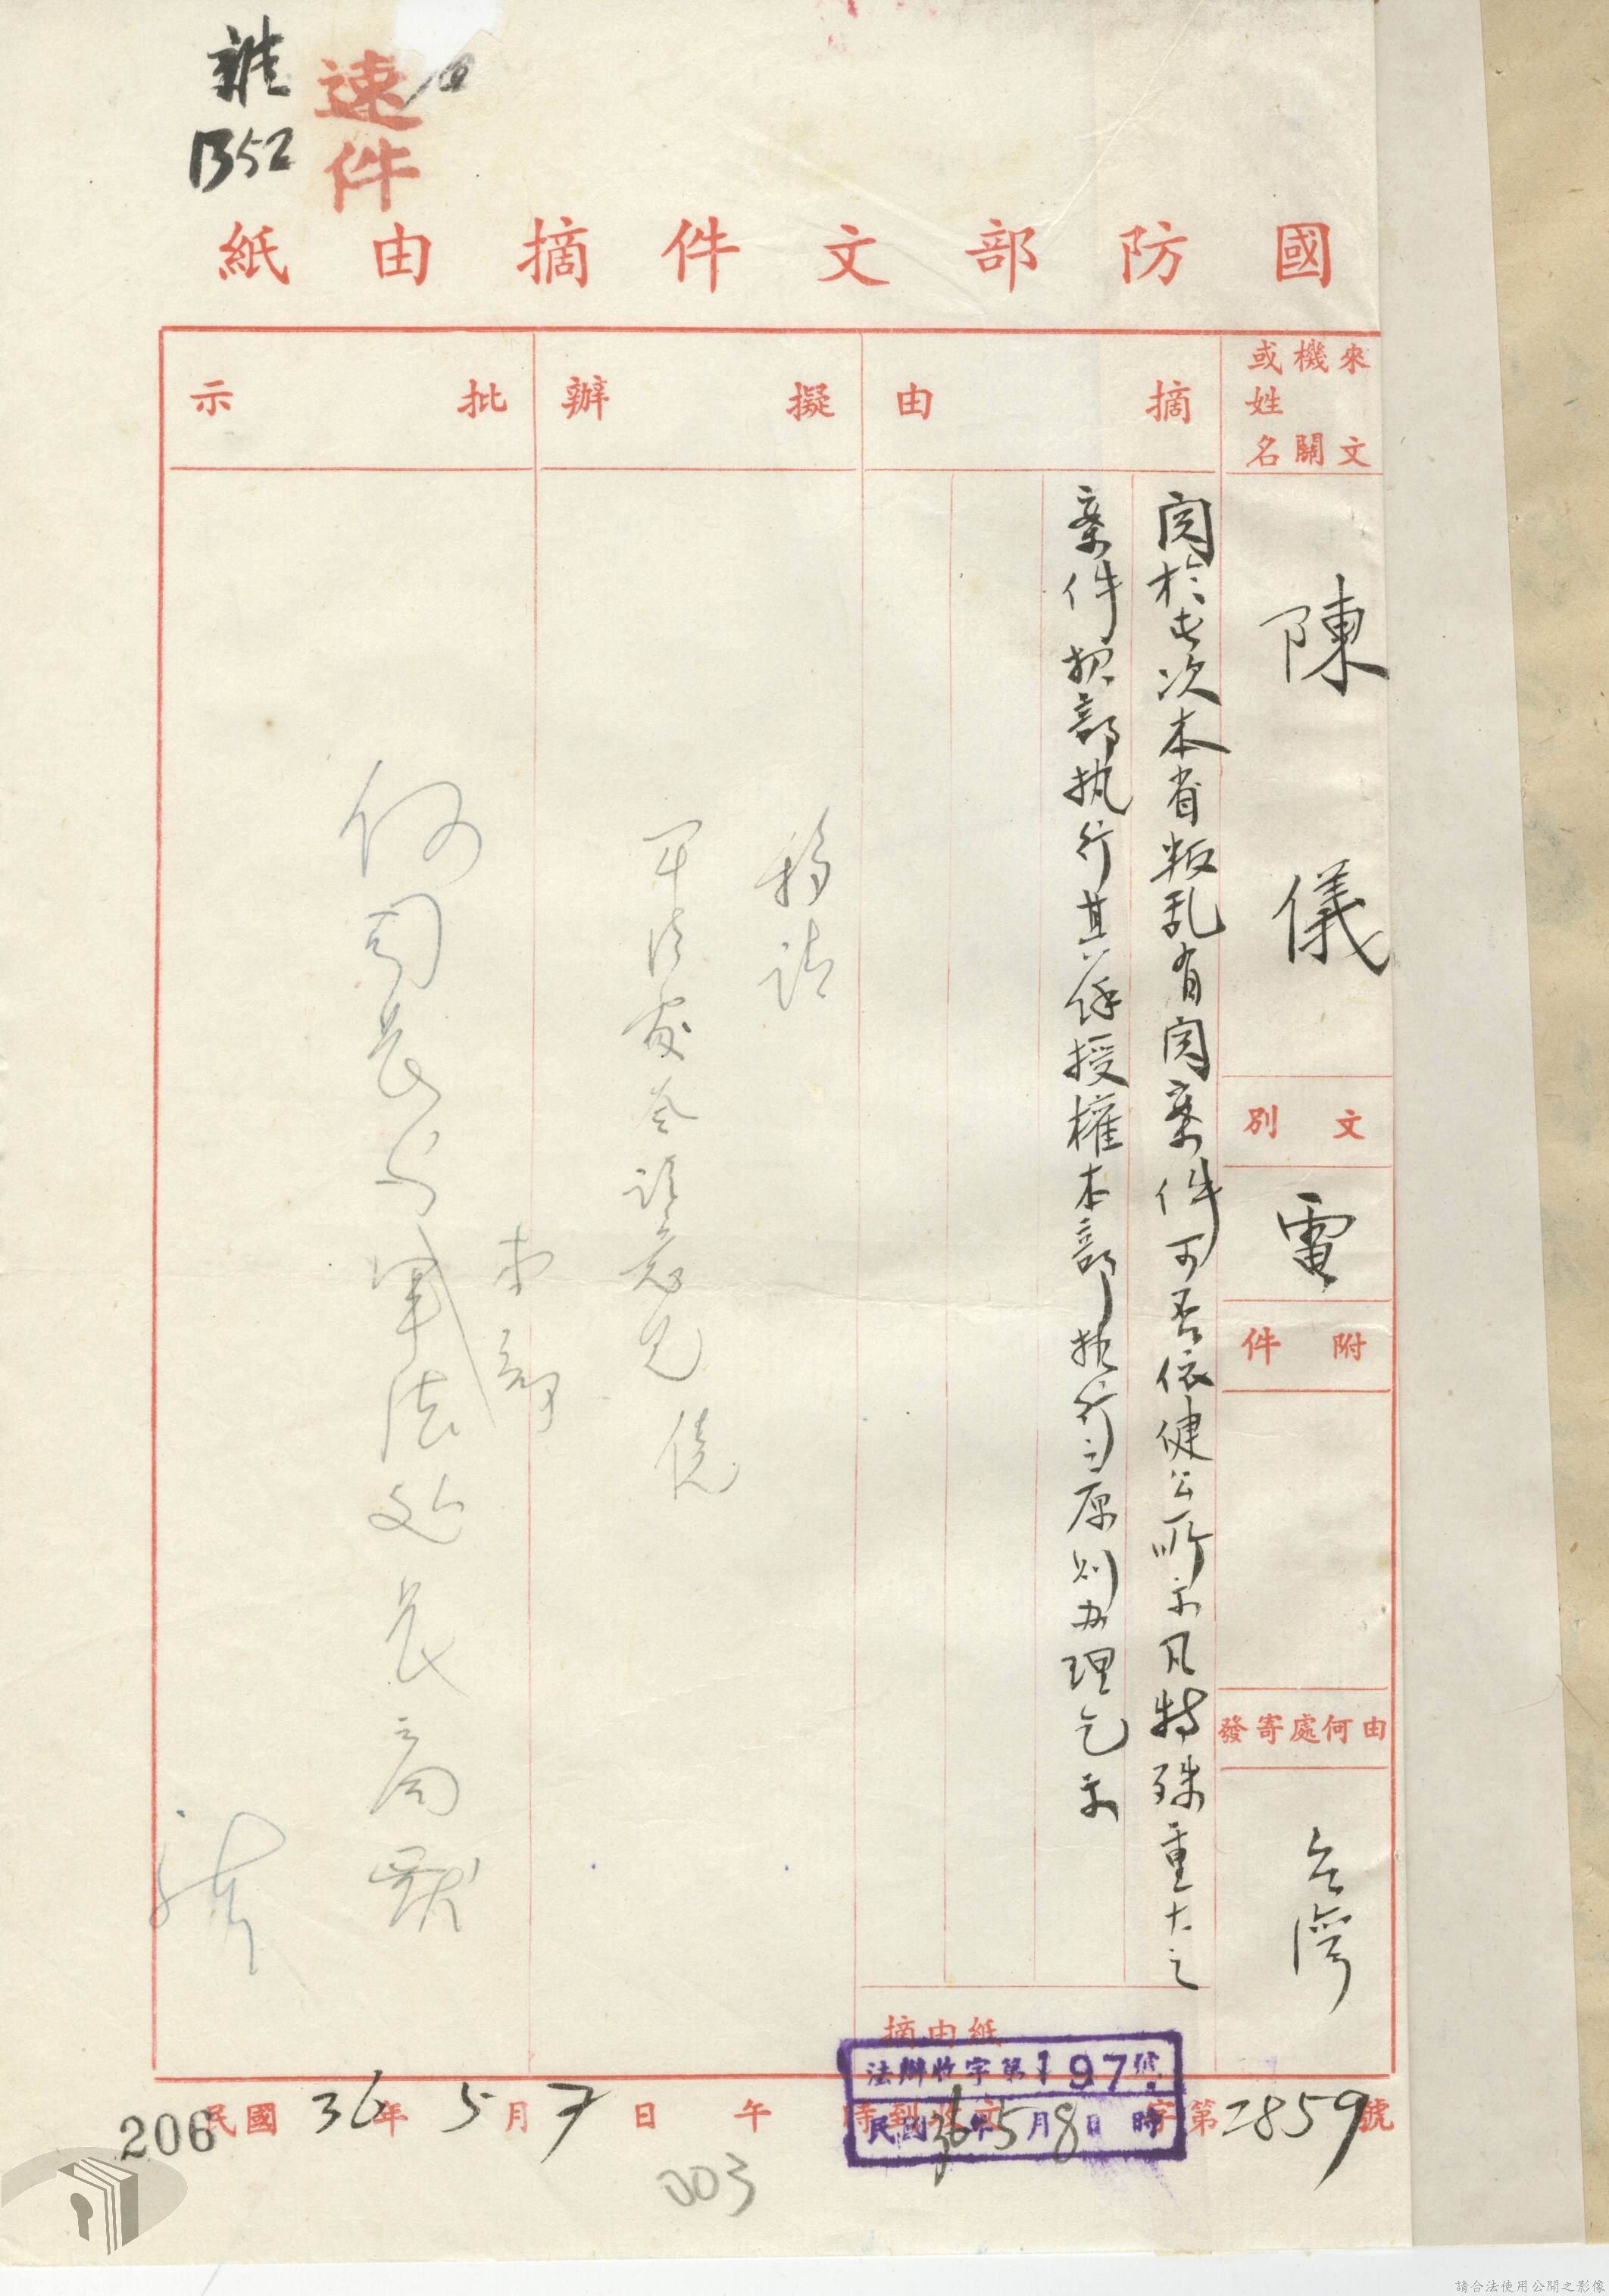 1352
速件
國防部文件摘由紙
來文機關或姓名
陳儀
文別
電
附件
由何處寄發
台灣
摘由
関於此次本省叛乱有関案件可否依健公所示凡特殊重大之
案件报部执行其餘授權本部执行之原则办理乞示
擬辦
移請
軍法處
批示
何司長与軍法処長商
本部
摘由紙
法辦收字第197號
民國36年5月8日時
民國36年5月7日午
字第2859號
206
003
請合法使用公開之影像